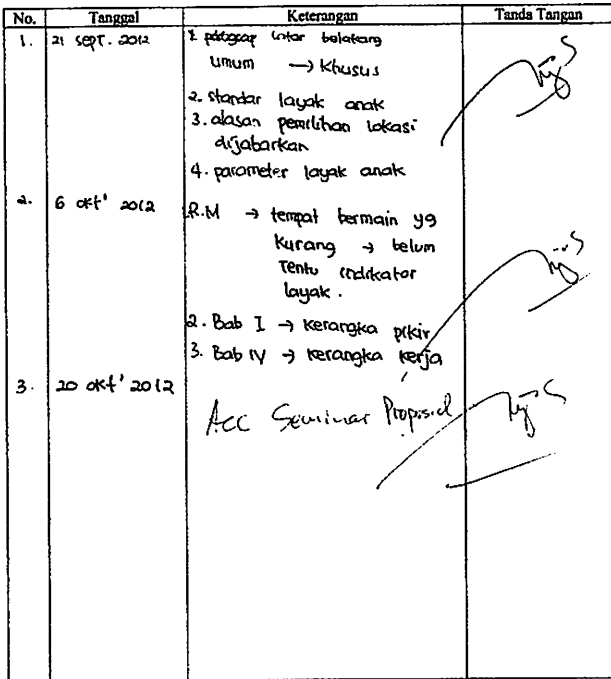 No. Tanggal Keterangan Tanda Tangan
1. 21 Sept. 2012 1. paragrap latar belakang
umum → Khusus
2. standar layak anak
3. alasan pemilihan lokasi
dijabarkan
4. parameter layak anak
2. 6 okt' 2012 R.M → tempat bermain yg
Kurang → belum
Tentu indikator
layak.
2. Bab I → kerangka pikir
3. Bab IV → kerangka kerja
3. 20 okt' 2012
Acc Seminar Proposal